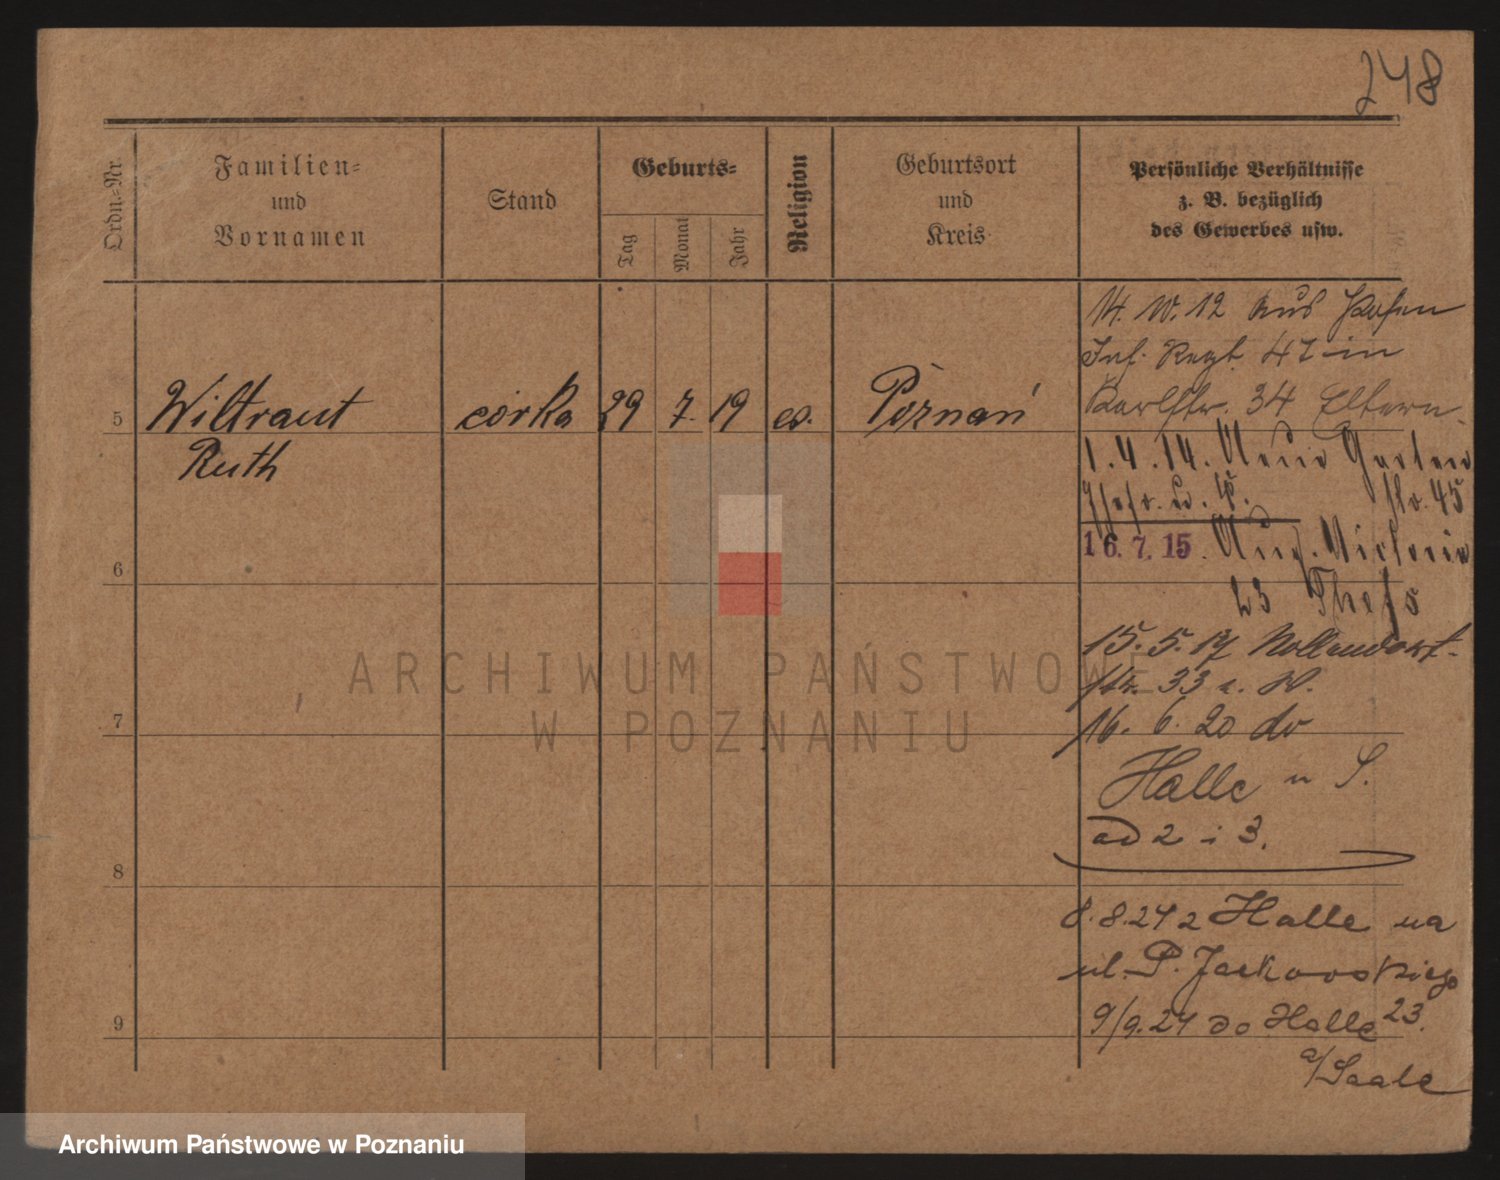 248
Ordn.=Nr.
Familien=
und
Vornamen
Stand
Geburts=
Tag
Monat
Jahr
Religion
Geburtsort
und
Kreis
Persönliche Verhältnisse
z. B. bezüglich
des Gewerbes usw.
14. 10. 12 aus Posen
Inf. Regt. 47 in
Karlstr. 34 Eltern
5 Wiltraut córka 29 7. 19 ew. Poznań
Ruth
1. 4. 14. Neue Garten
str. 45
16. 7. 15. Aug. Victoria
23
6
15. 5. 17 Nollendorf-
str. 33 a. W.
7
16. 6. 20 do
Halle n S.
ad 2 i 3.
8
8. 8. 24 z Halle na
ul. P. Jackowskiego
23.
9
9/9. 24 do Halle
a/Saale
ARCHIWUM PAŃSTWOWE
W POZNANIU
Archiwum Państwowe w Poznaniu